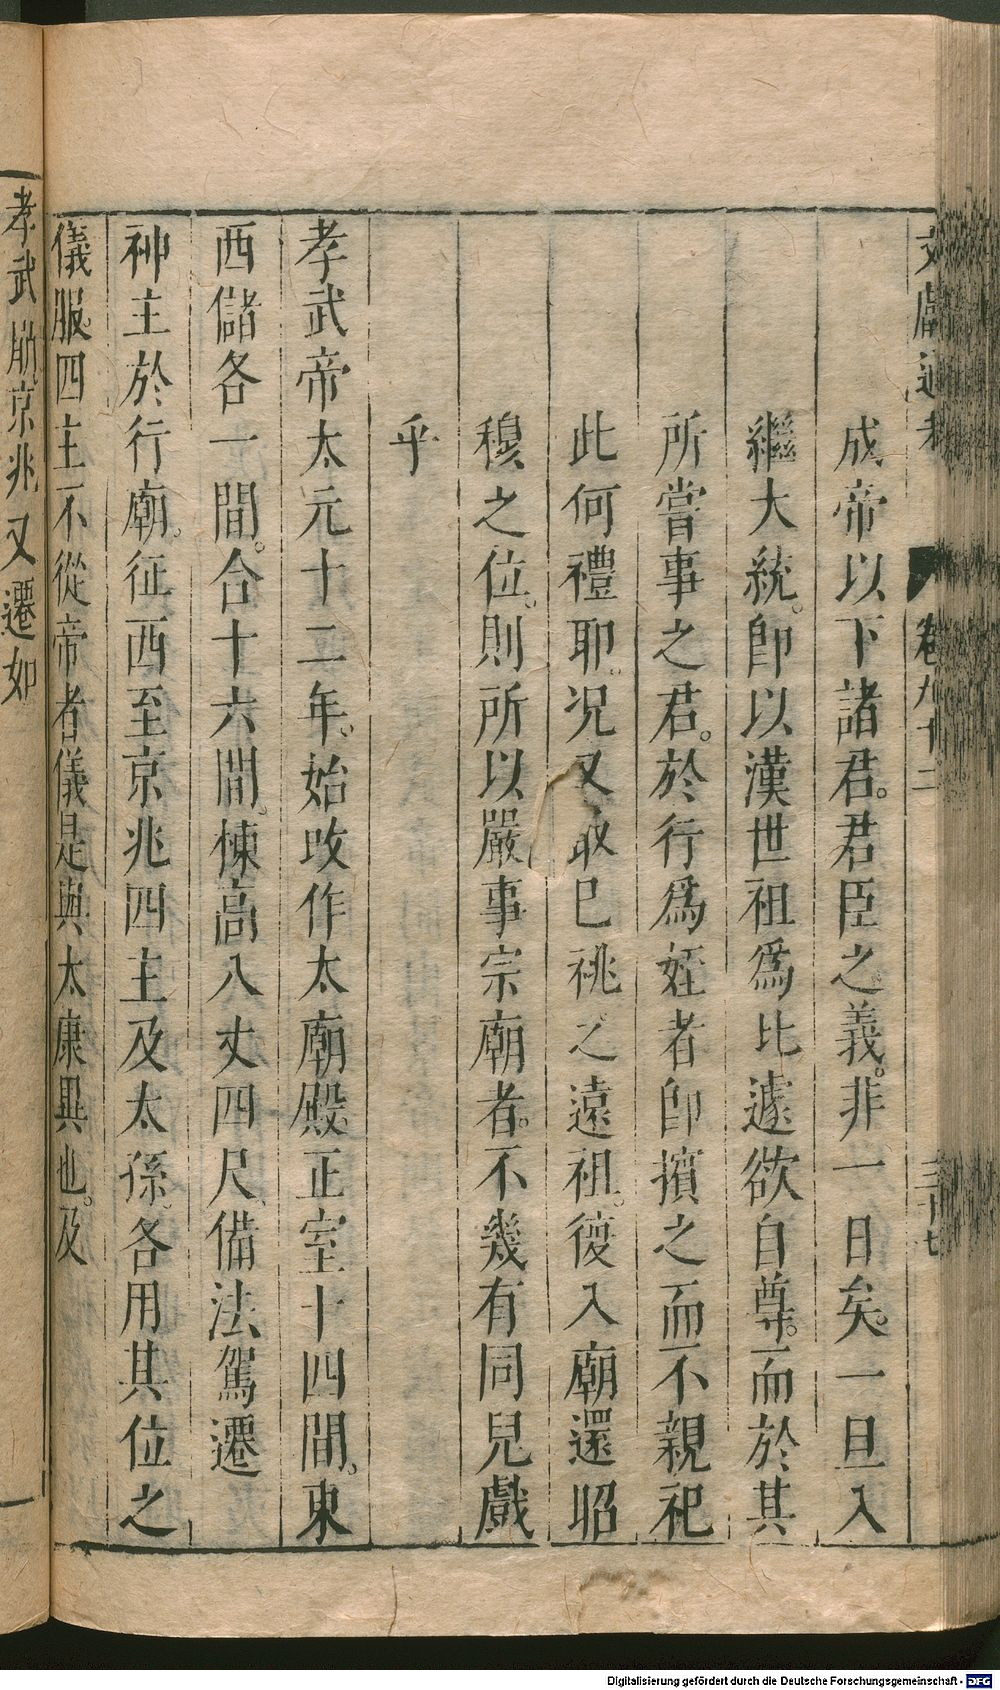 文獻通考 卷九十二 三十七
成帝以下諸君。君臣之義。非一日矣。一旦入
繼大統。卽以漢世祖爲比遽欲自尊。而於其
所嘗事之君。於行爲姪者卽擯之而不親祀
此何禮耶。况又取已祧之遠祖。復入廟還昭
穆之位。則所以嚴事宗廟者。不幾有同兒戲
乎
孝武帝太元十二年。始改作太廟殿。正室十四間。東
西儲各一間。合十六間。棟高八丈四尺、備法駕遷
神主於行廟。征西至京兆四主及太孫。各用其位之
儀服。四主不從帝者儀是與太康異也。及
孝武崩京兆又遷如
Digitalisierung gefördert durch die Deutsche Forschungsgemeinschaft - DFG